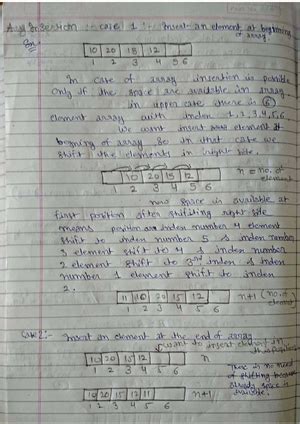 Array Insertion :- case 1 :- Insert an element at beginning of array.
Sol
10 20 18 12
1 2 3 4 5 6
In case of array insertion is possible
only if the space are available in array
in upper case there is 6
element array with index 1,2,3,4,5,6
We want insert an element at
beginning of array. So in that case we
shift the elements in right side.
10 20 15 12
n = no. of element
1 2 3 4 5 6
now space is available at
first position after shifting right side
means position are index number 4 element
shift to index number 5 & index number
3 element shift to 4 & index number
2 element shift to 3rd index & index
number 1 element shift to index
2.
11 10 20 15 12
n+1 (no. of element
1 2 3 4 5 6
Case 2:- Insert an element at the end of array
want to insert element in this position
10 20 15 12
n
1 2 3 4 5 6
There is no need
of shifting because
already space is
available.
10 20 15 12 11
n+1
1 2 3 4 5 6